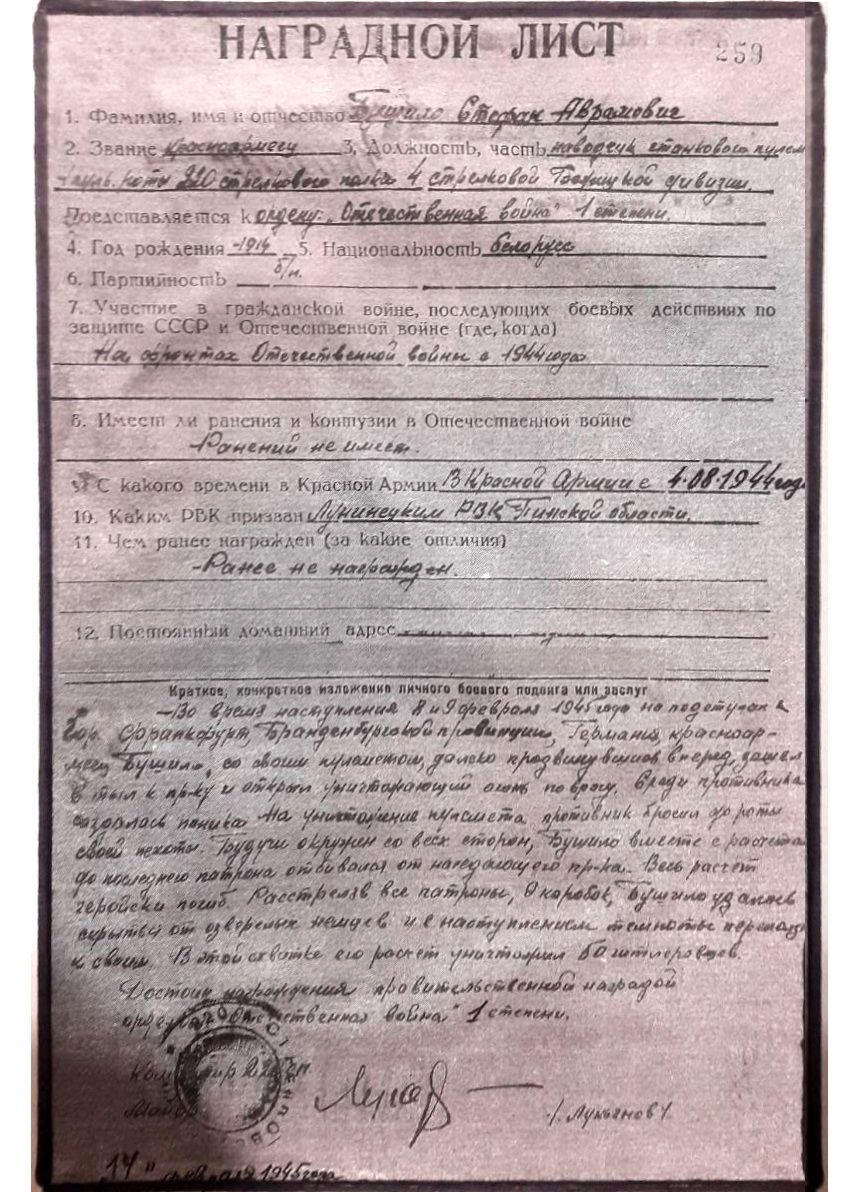 НАГРАДНОЙ ЛИСТ
259
1. Фамилия, имя и отчество Бушило Стефан Аврамович
2. Звание красноармеец 3. Должность, часть наводчик станкового пулем
пульроты 220 стрелкового полка 4 стрелковой дивизии.
Представляется к ордену: „Отечественная война" 1 степени.
4. Год рождения -1914 5. Национальность белорусс
6. Партийность б/п.
7. Участие в гражданской войне, последующих боевых действиях по
защите СССР и Отечественной войне (где, когда)
На фронтах Отечественной войны с 1944 года
8. Имеет ли ранения и контузии в Отечественной войне
-Ранений не имеет.
9. С какого времени в Красной Армии В Красной Армии с 4.08.1944 год
10. Каким РВК призван Лунинецким РВК Пинской области.
11. Чем ранее награжден (за какие отличия)
-Ранее не награжден.
12. Постоянный домашний адрес
Краткое, конкретное изложение личного боевого подвига или заслуг
-Во время наступления 8 и 9 февраля 1945 года на подступах к
гор. Франкфурт, Бранденбургской провинции, Германия, красноар-
меец Бушило, со своим пулеметом, далеко продвинувшись вперед, зашел
в тыл к пр-ку и открыл уничтожающий огонь по врагу. Среди противника
создалась паника. На уничтожение пулемета противник бросил до роты
своей пехоты. Будучи окружен со всех сторон, Бушило вместе с расчетом
до последнего патрона отбивался от наседающего пр-ка. Весь расчет
геройски погиб. Расстреляв все патроны, 9 коробок, Бушило удалось
скрыться от озверелых немцев и с наступлением темноты
к своим. В этой схватке его расчет уничтожил 60 гитлеровцев.
Достоин награждения правительственной наградой
орденом „Отечественная война" 1 степени.
Командир
Майор /Лукьянов/
„14" февраля 1945 года